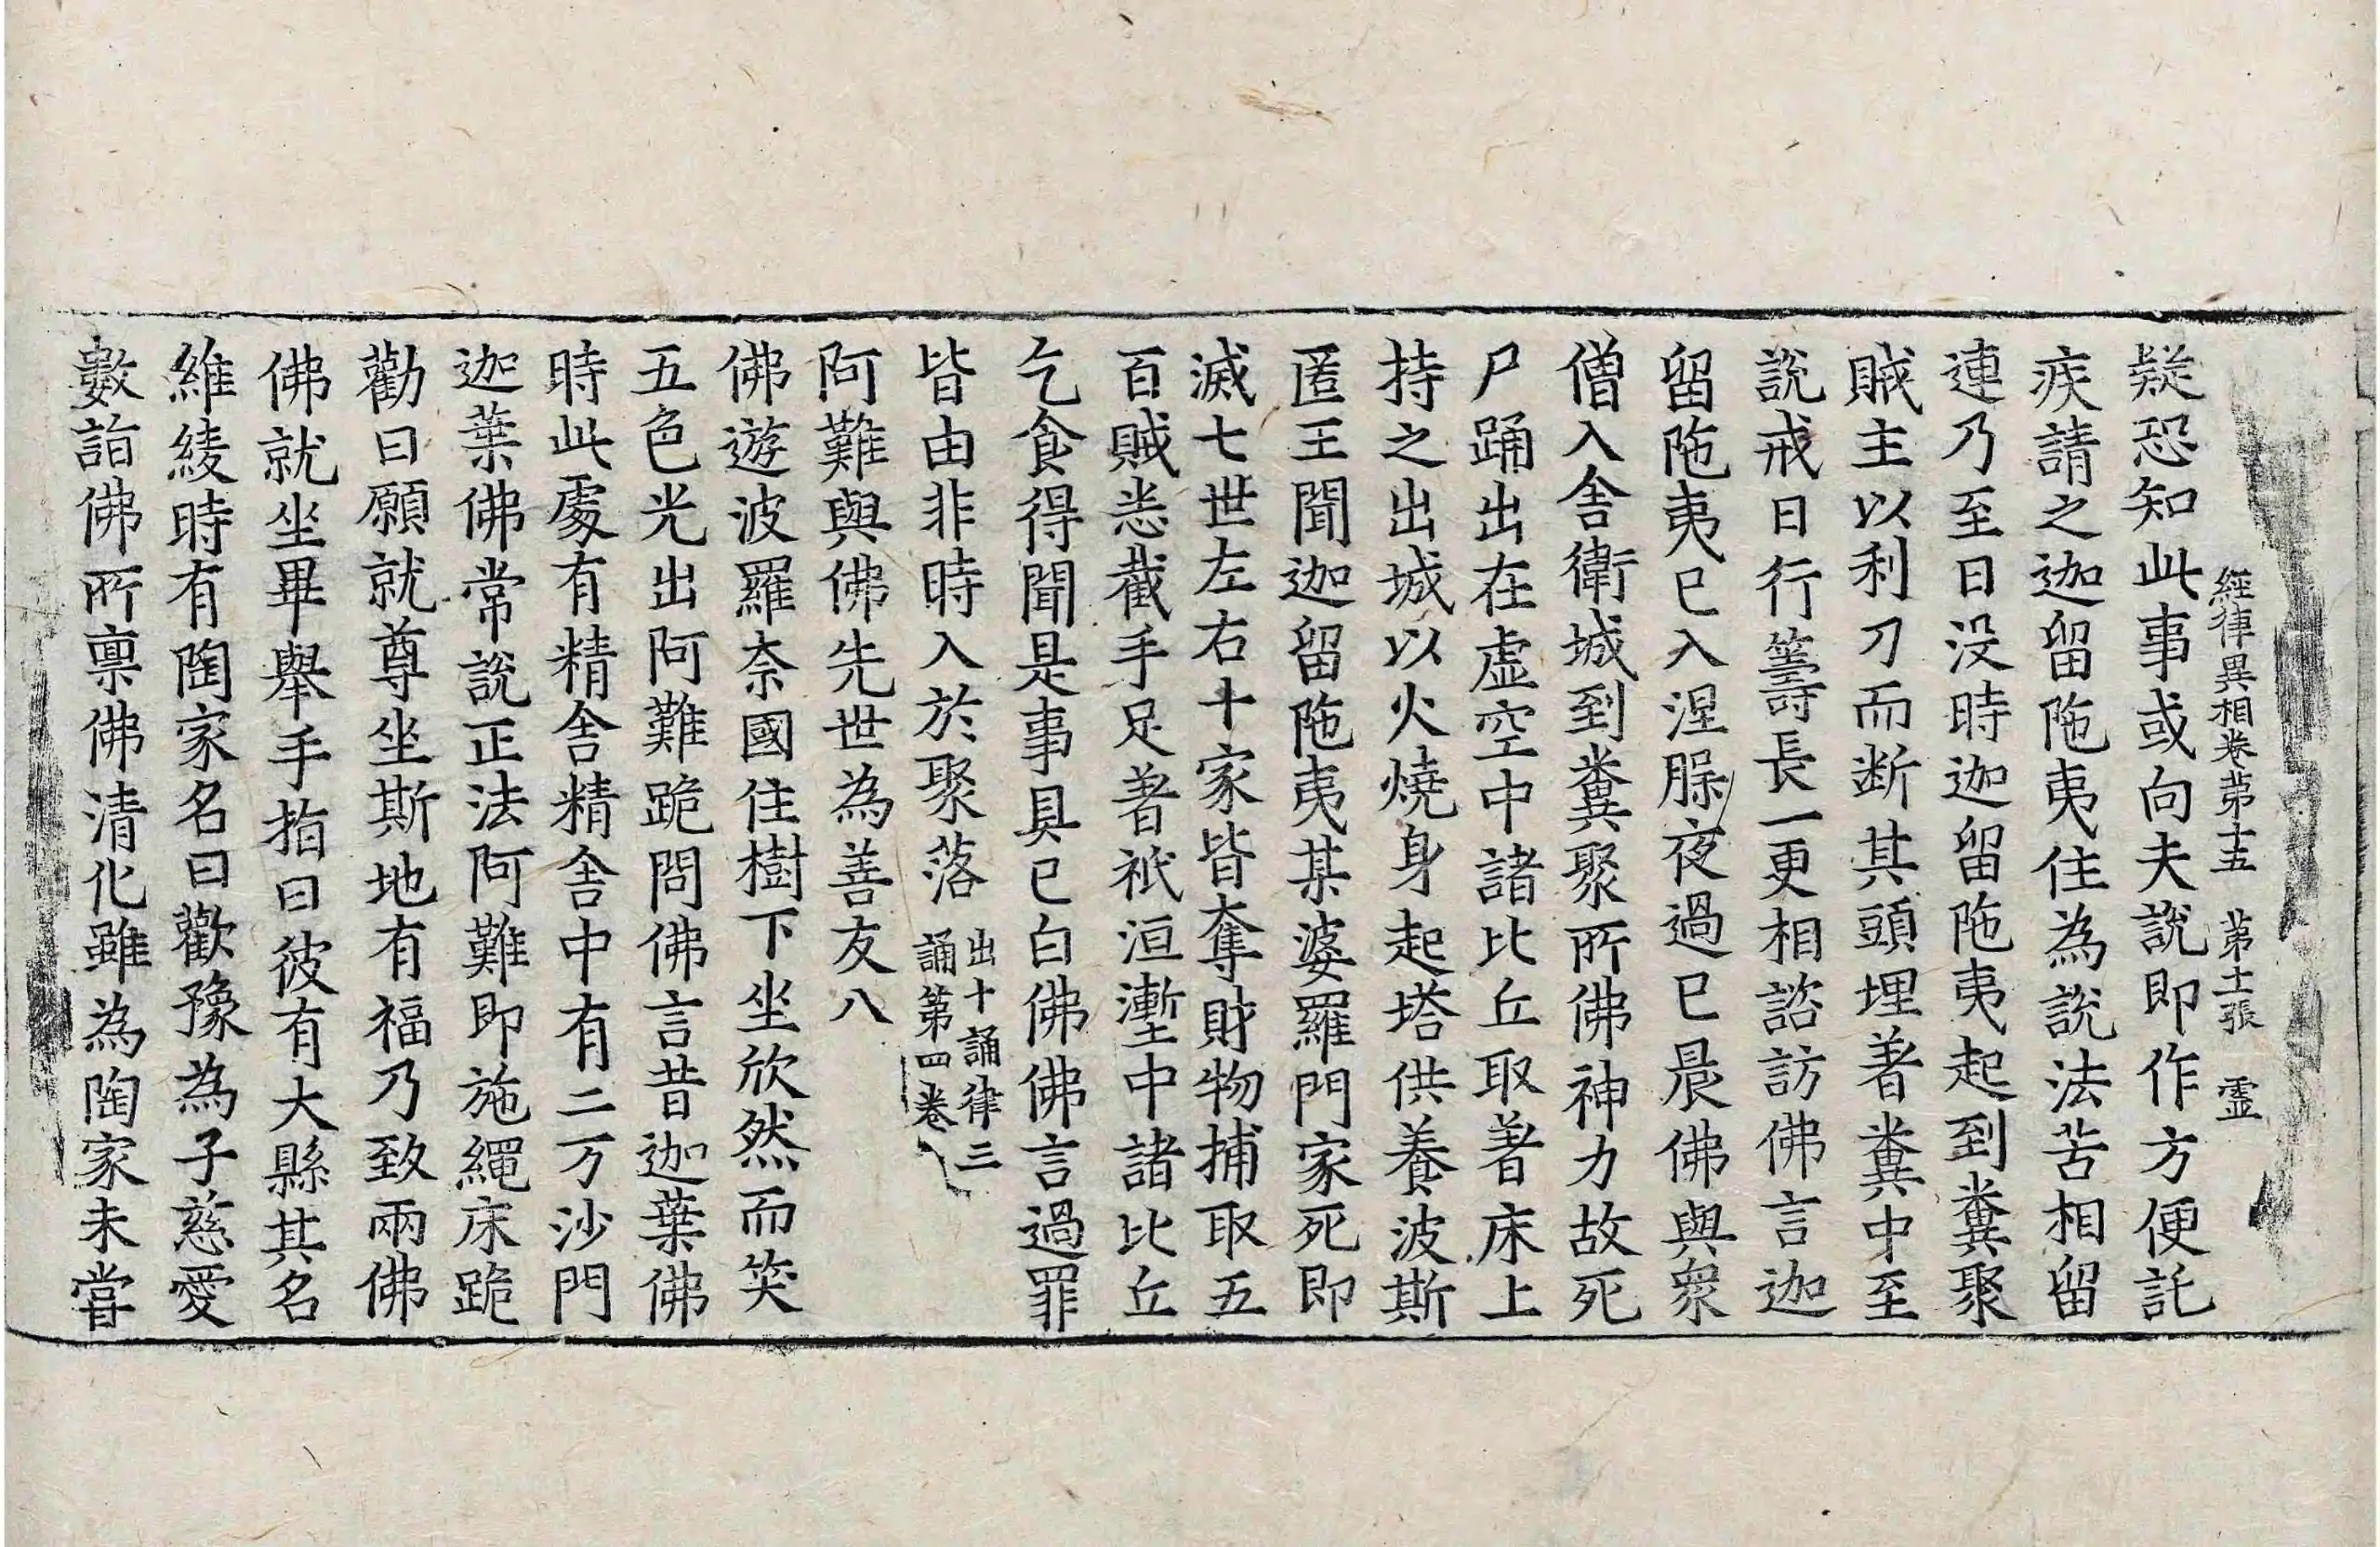 經律異相卷第十五　第十一張　靈
疑恐知此事或向夫說即作方便託
疾請之迦留陁夷住為說法苦相留
連乃至日没時迦留陁夷起到糞聚
賊主以利刀而断其頭埋著糞中至
說戒日行籌長一更相諮訪佛言迦
留陁夷已入涅槃夜過已晨佛與衆
僧入舍衛城到糞聚所佛神力故死
尸踊出在虛空中諸比丘取著床上
持之出城以火燒身起塔供養波斯
匿王聞迦留陁夷某婆羅門家死即
滅七世左右十家皆奪財物捕取五
百賊悉截手足著祇洹壍中諸比丘
乞食得聞是事具已白佛佛言過罪
皆由非時入於聚落出十誦律三誦第四卷
阿難與佛先世為善友八
佛遊波羅奈國住樹下坐欣然而笑
五色光出阿難跪問佛言昔迦葉佛
時此處有精舍精舍中有二万沙門
迦葉佛常說正法阿難即施繩床跪
勸曰願就尊坐斯地有福乃致兩佛
佛就坐畢舉手指曰彼有大縣其名
維綾時有陶家名曰歡豫為子慈愛
數詣佛所禀佛清化雖為陶家未嘗